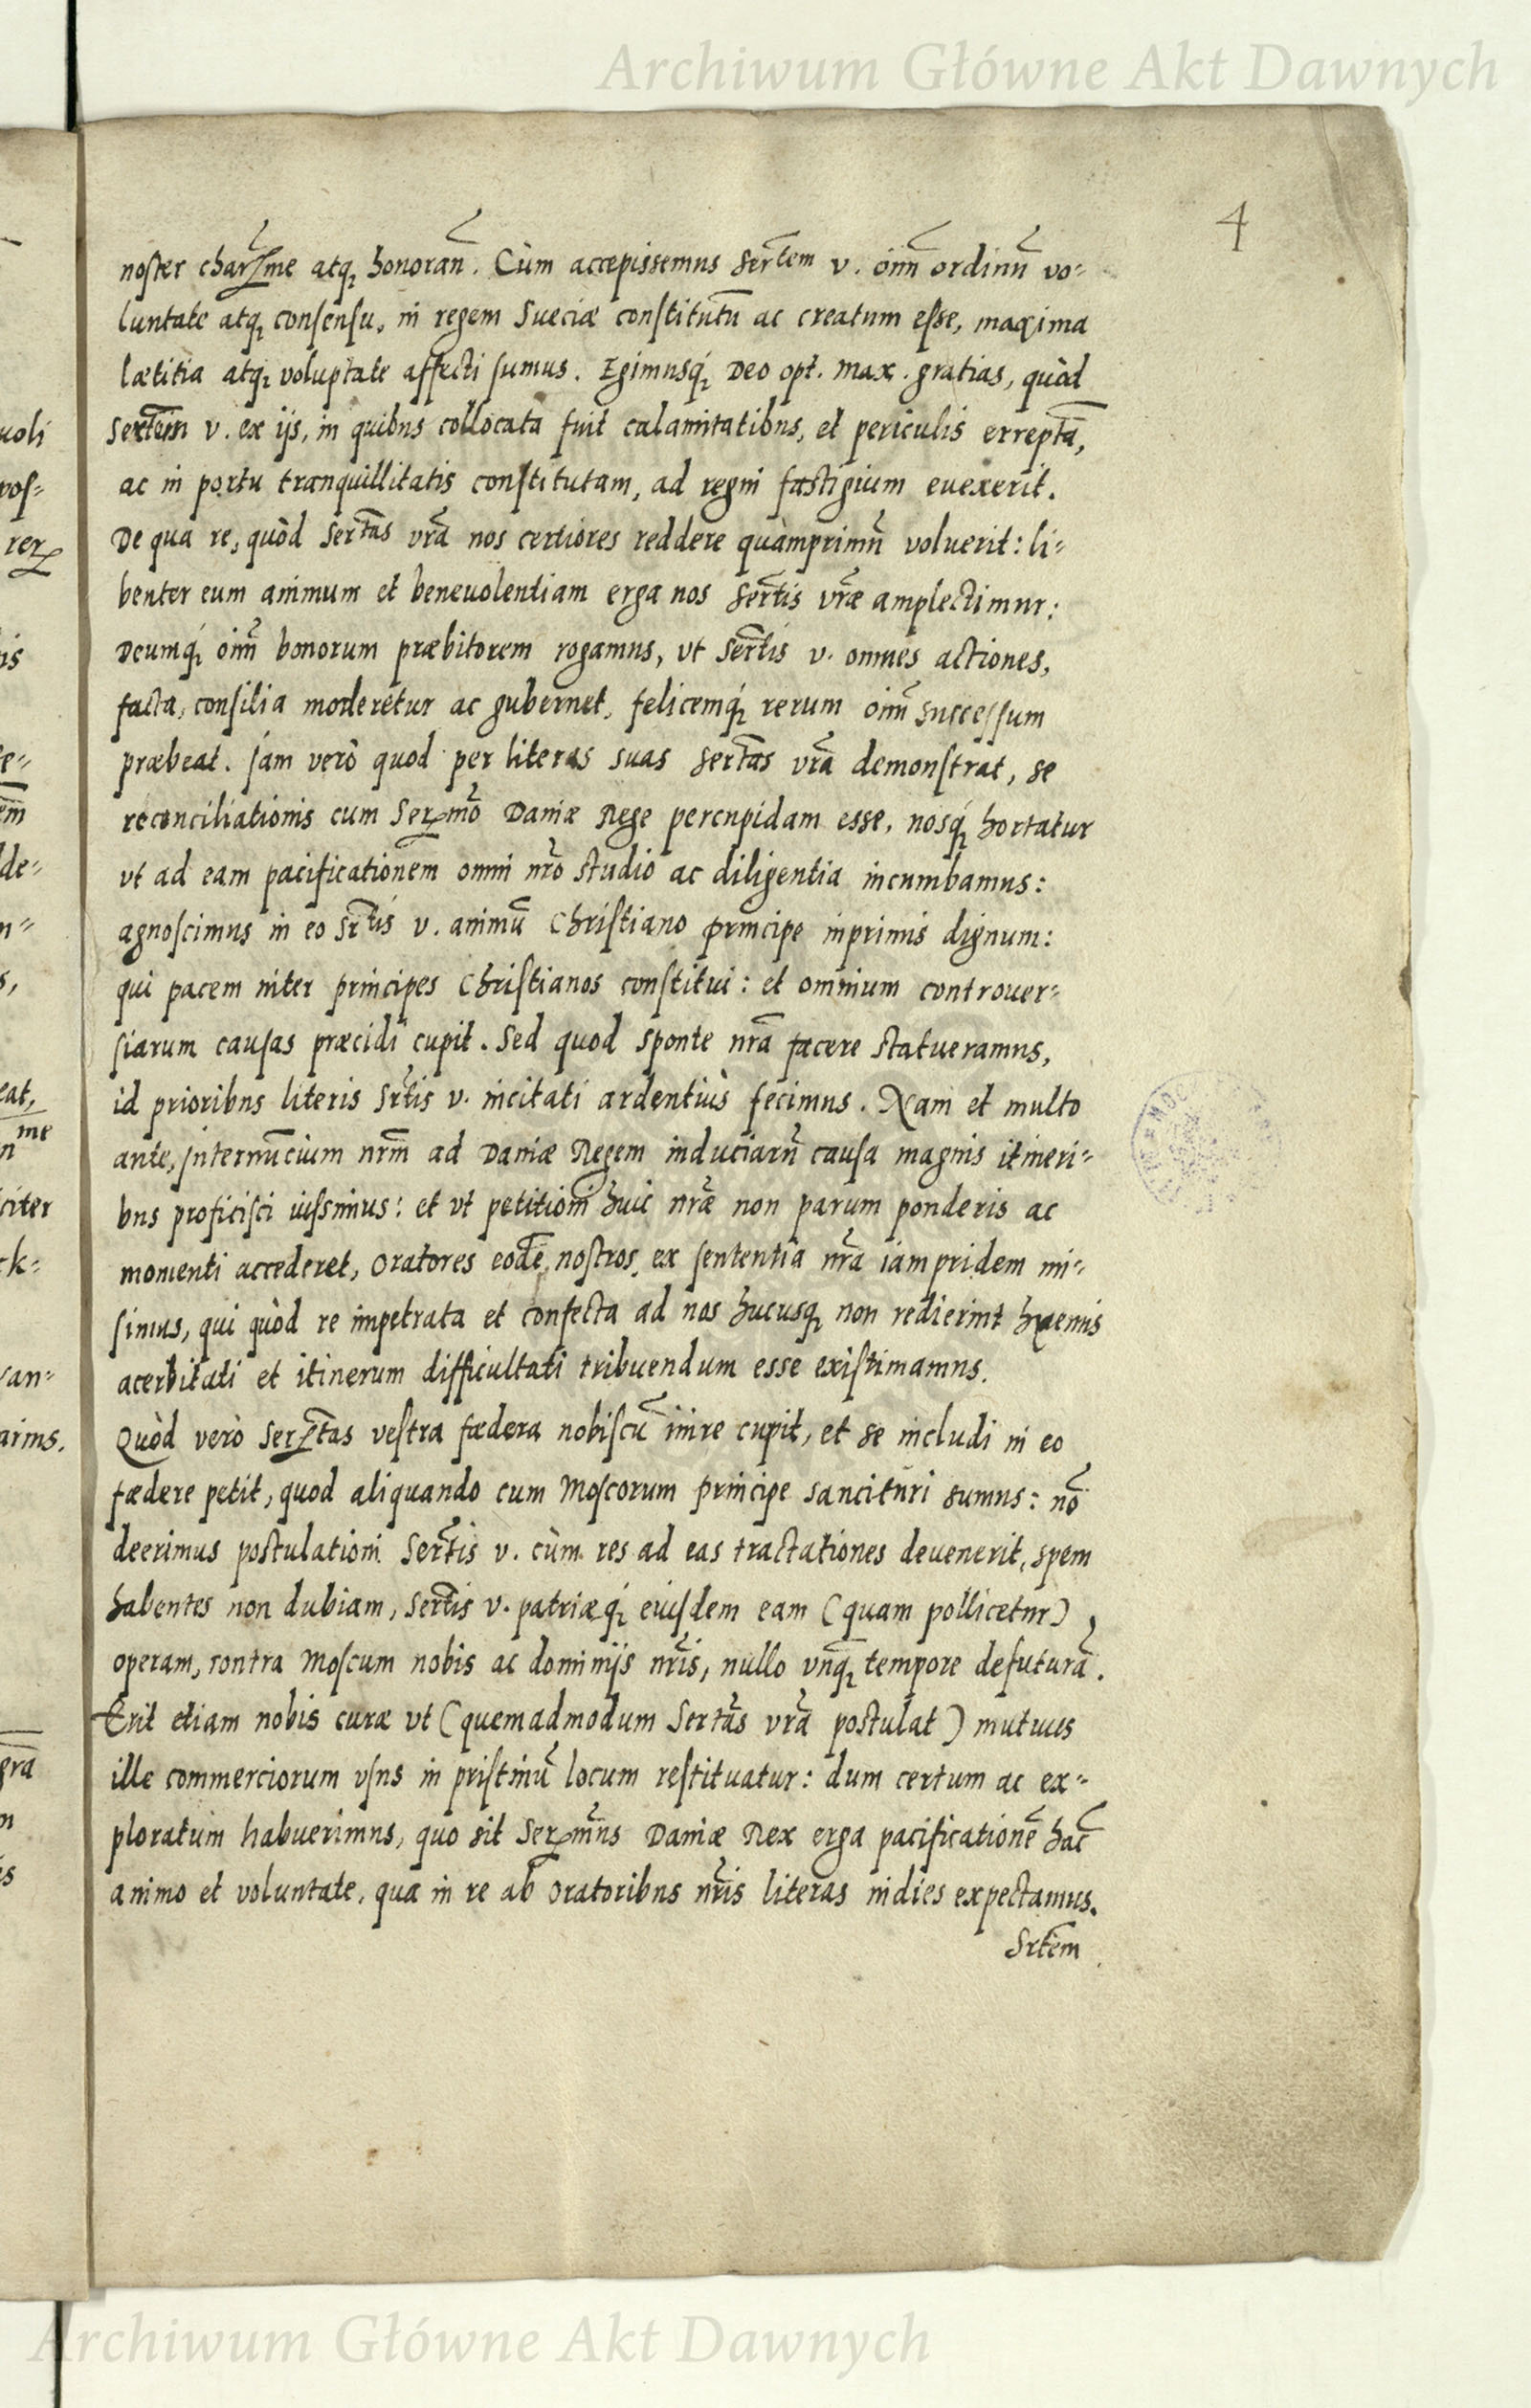 Archiwum Główne Akt Dawnych
4
noster charme atq; honoran̄. Cùm accepissemus Sertem v. oīm ordinū vo=
luntate atq; consensu, in regem Sueciæ constitutū ac creatum esse, maxima
lætitia atq; voluptate affecti sumus. Egimusq; Deo opt. Max. gratias, quòd
Sertem v. ex ijs, in quibus collocata fuit calamitatibus, et periculis erreptā,
ac in portu tranquillitatis constitutam, ad regni fastigium euexerit.
De qua re, quòd Sertas vrā nos certiores reddere quàmprimū voluerit: li=
benter eum animum et beneuolentiam erga nos Sertis vræ amplectimur:
Deumq; oīm bonorum præbitorem rogamus, vt Sertis v. omnes actiones,
facta, consilia moderetur ac gubernet, felicemq; rerum oīm successum
præbeat. Jam verò quod per literas suas Sertas vrā demonstrat, se
reconciliationis cum Sermō Daniæ Rege percupidam esse, nosq; hortatur
vt ad eam pacificationem omni nrō studio ac diligentia incumbamus:
agnoscimus in eo Srtis v. animū Christiano principe inprimis dignum:
qui pacem inter principes Christianos constitui: et omnium controuer=
siarum causas præcidi cupit. Sed quod sponte nrā facere statueramus,
id prioribus literis Srtis v. incitati ardentiùs fecimus. Nam et multo
ante, internūcium nrm̄ ad Daniæ Regem induciarū causa magnis itineri=
bus proficisci iussimus: et vt petitioni huic nræ non parum ponderis ac
momenti accederet, oratores eodē nostros ex sententia nrā iampridem mi=
simus, qui quòd re impetrata et confecta ad nos hucusq; non redierint hyemis
acerbitati et itinerum difficultati tribuendum esse existimamus.
Quòd verò Sertas vestra fœdera nobiscū inire cupit, et se includi in eo
fœdere petit, quod aliquando cum Moscorum principe sancituri sumus: nō
deerimus postulationi Sertis v. cùm res ad eas tractationes deuenerit, spem
habentes non dubiam, Sertis v. patriæq; eiusdem eam (quam pollicetur)
operam, contra Moscum nobis ac dominijs nrīs, nullo vnq̄; tempore defuturā.
Erit etiam nobis curæ vt (quemadmodum Sertas vrā postulat) mutuus
ille commerciorum vsus in pristinū locum restituatur: dum certum ac ex=
ploratum habuerimus, quo sit Sermus Daniæ Rex erga pacificationē hāc
animo et voluntate, qua in re ab oratoribus nrīs literas indies expectamus.
Srtem
Archiwum Główne Akt Dawnych